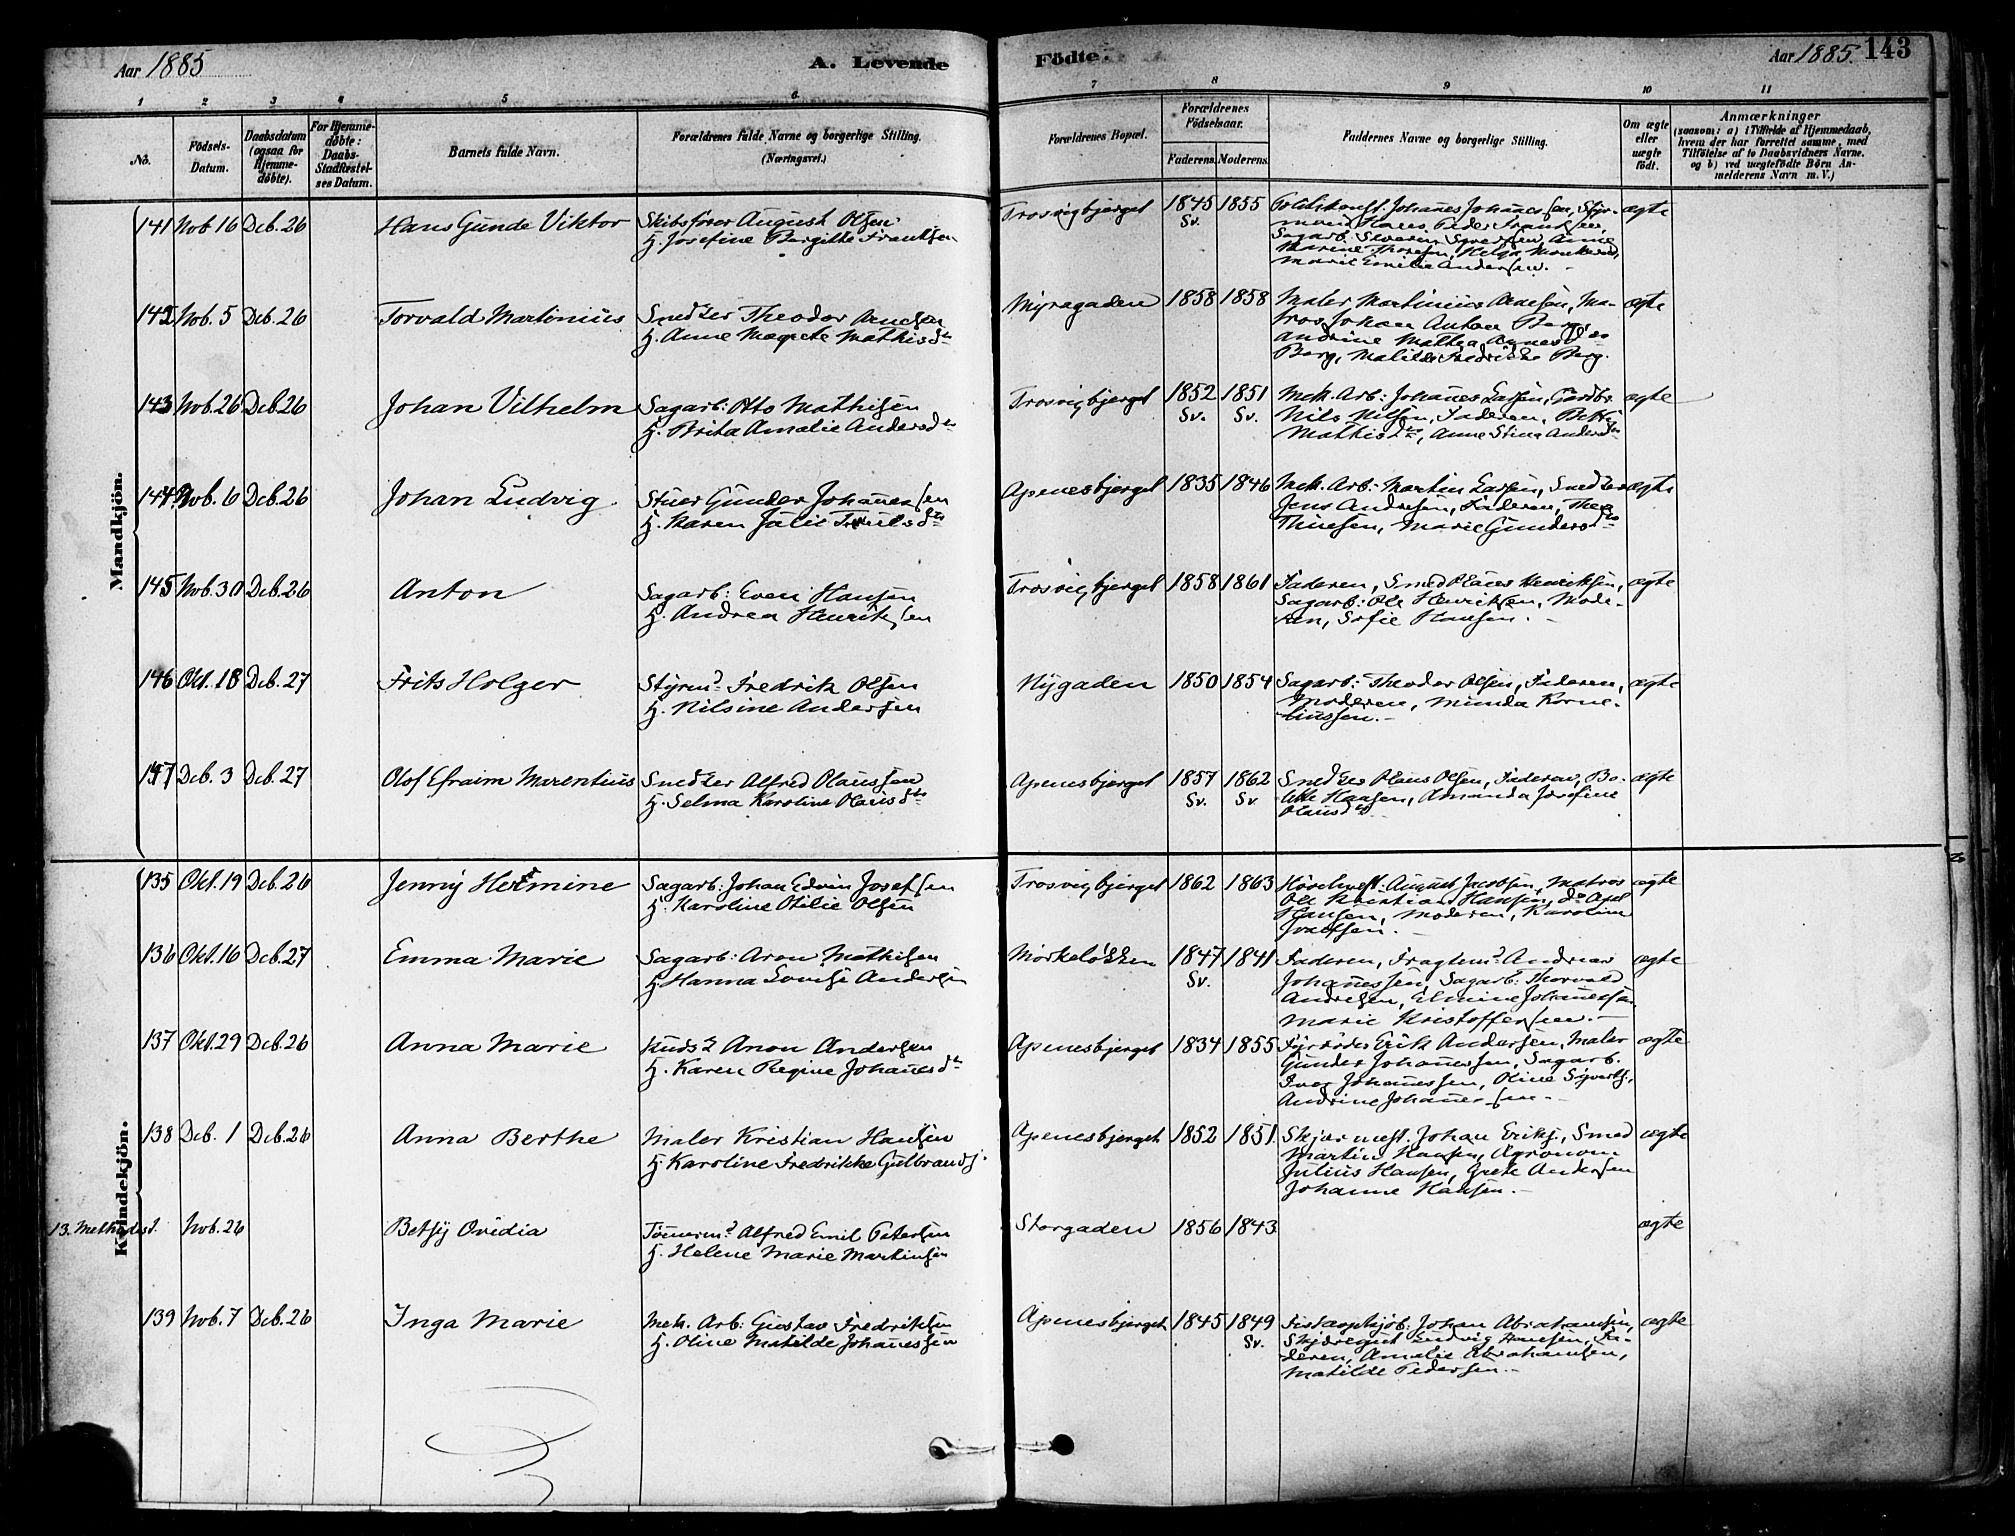 Aar 1885
A. Levende
Födte.
Aar 1885. 143
1 2 3 4 5 6 7 8 9 10 11
No.
Födsels-
Datum.
Daabsdatum
(ogsaa for
Hjemme-
døbte).
For Hjemme-
døbte:
Daabs-
Stadfæstel-
ses Datum.
Barnets fulde Navn.
Forældrenes fulde Navne og borgerlige Stilling.
(Næringsvei.)
Forældrenes Bopæl.
Forældrenes
Födselsaar.
Faderens. Moderens.
Faddernes Navne og borgerlige Stilling.
Om ægte
eller
uægte
født.
Anmærkninger
(saasom: a) i Tilfælde af Hjemmedaab,
hvem der har forrettet samme, med
Tilföielse af to Daabsvidners Navne,
og b) ved uægtefödte Börn An-
melderens Navn m. V.)
Mandkjön.
141 Nov. 16 Dcb. 26 Hans Gunde Viktor
Skibsfører August Olsen
H. Josefine Bergitte Frantsen
Trosvigbjerget 1845 1855
Sv.
Johannes Johannessen, Styr-
mand Hans Peder Frantsen,
Sagarb. Severin Syversen, Anne
Marine Thoresen, Helga
Marie Emilie Andersen.
ægte
142 Nov. 5 Dcb. 26 Torvald Martinius
Smed Theodor Arnesen
H. Anne Magrete Mathisdtr
Myragaden 1858 1858
Maler Martinius Arnesen, Ma-
tros Johan Anton Berg,
Andrine Mathea
Berg, Matilde Fredrikke Berg.
ægte
143 Nov. 26 Dcb. 26 Johan Vilhelm
Sagarb: Otto Mathisen
H. Brita Amalie Andersdtr
Trosvigbjerget 1852 1851
Sv. Sv.
Mek. Arb: Johannes Larsen, Gardbr.
Nils Nilsen, Faderen,
Mathisdtr, Anne Stina Andersdtr
ægte
144 Nov. 6 Dcb. 26 Johan Ludvig
Stuer Gunder Johannessen
H. Karen Julie
Apenesbjerget 1835 1846
Mek. Arb: Martin Larsen, Smed
Jens Andresen, Faderen, Thea
Thuesen, Marie Gundersdtr
ægte
145 Nov. 30 Dcb. 26 Anton
Sagarb: Even Hansen
H. Andrea Henriksen
Trosvigbjerget 1858 1861
Faderen, Smed Olaus Henriksen,
Sagarb: Ole Henriksen, Mode-
ren, Sofie Hansen.
ægte
146 Okt. 18 Dcb. 27 Frits Holger
Styrmd Fredrik Olsen
H. Nilsine Andersen
Nygaden 1850 1854
Sagarb: Theodor Olsen, Faderen,
Moderen, Minda Korne-
liussen.
ægte
147 Dcb. 3 Dcb. 27 Olof Efraim Marentius
Smed Alfred Olaussen
H. Selma Karoline Olausdtr
Apenesbjerget 1857 1862
Sv. Sv.
Smed Olaus Olsen, Faderen, Bo-
lette Hansen, Amanda Josefine
Olausdtr
ægte
Kvindekjön.
135 Okt. 19 Dcb. 26 Jenny Hermine
Sagarb: Johan Edvin Josefsen
H. Karoline Otilie Olsen
Trosvigbjerget 1862 1863
August Jacobsen, Matros
Ole Kristian Hansen, do Axel
Hansen, Moderen, Karoline
Josefsen.
ægte
136 Okt. 16 Dcb. 27 Emma Marie
Sagarb: Aron Mathisen
H. Hanna Lovise Andersen
Mørkeløkken 1847 1841
Sv.
Faderen, Fragtemd Andreas
Johannessen, Sagarb: Thorvald
Andresen, Elmine Johannessen,
Marie Kristoffersen.
ægte
137 Okt. 29 Dcb. 26 Anna Marie
Aron Andersen
H. Karen Regine Johannesdtr
Apenesbjerget 1834 1855
Fyrbøder Erik Andersen, Maler
Gunder Johannessen, Sagarb.
Ivar Johannessen, Oline Syverts.,
Andrine Johannessen.
ægte
138 Dcb. 1 Dcb. 26 Anna Berthe
Maler Kristian Hansen
H. Karoline Fredrikke Gulbrands.
Apenesbjerget 1852 1851
Johan Eriks., Smed
Martin Hansen, Agronom
Julius Hansen, Grete Andersen
Johanne Hansen.
ægte
13. Methodist. Nov. 26 Betsy Ovidia
Tømmermd Alfred Emil Petersen
H. Helene Marie Martinsen
Storgaden 1856 1843 ægte
139 Nov. 7 Dcb. 26 Inga Marie
Mek. Arb: Gustav Fredriksen
H. Oline Matilde Johannessen
Apenesbjerget 1845 1849
Sv.
Johan Abrahamsen,
Ludvig Hansen, Fa-
deren, Amalie Abrahamsen,
Matilde Pedersen.
ægte